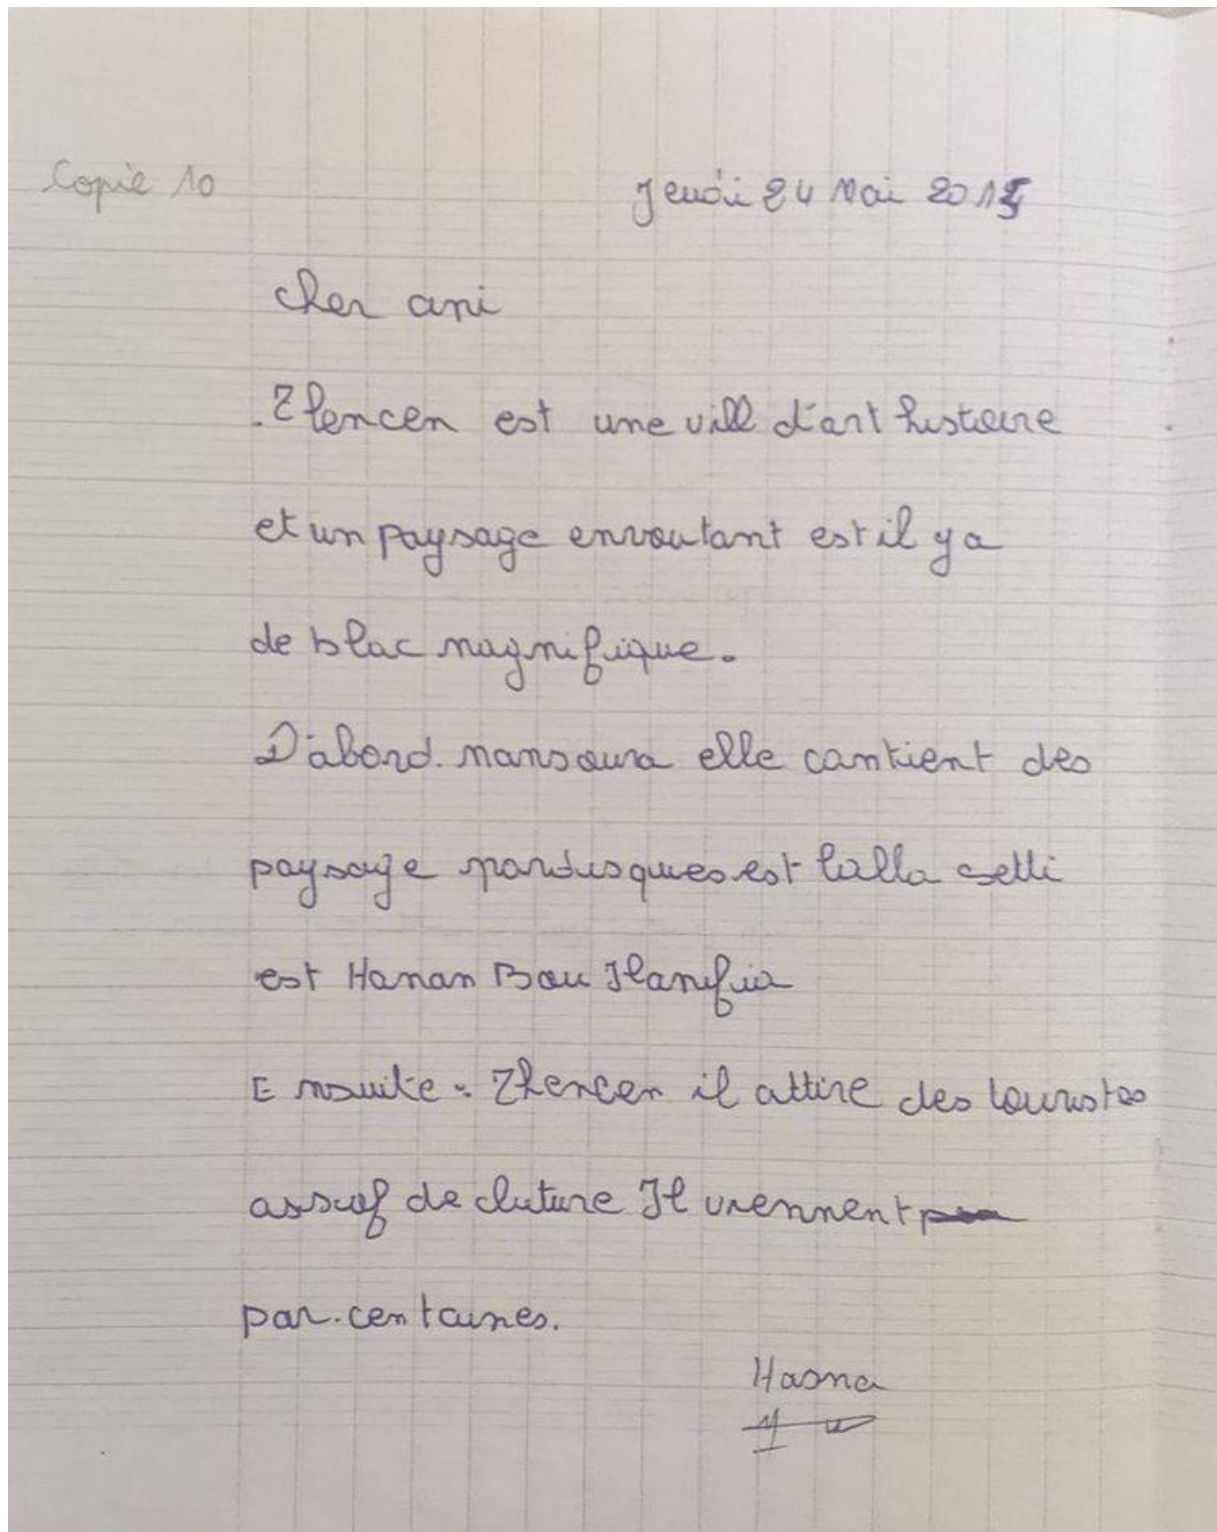 Copie 10
Jeudi 24 Mai 2015
cher ami
. Tlencen est une vill d'art histoire
et un paysage envoutant est il y a
de blac magnifique.
D'abord. mansoura elle contient des
paysage est lalla setti
est Haman Bou Hanifia
Ensuite. Tlencen il attire des touristes
assoif de cluture Il viennent
par. centaines.
Hasna